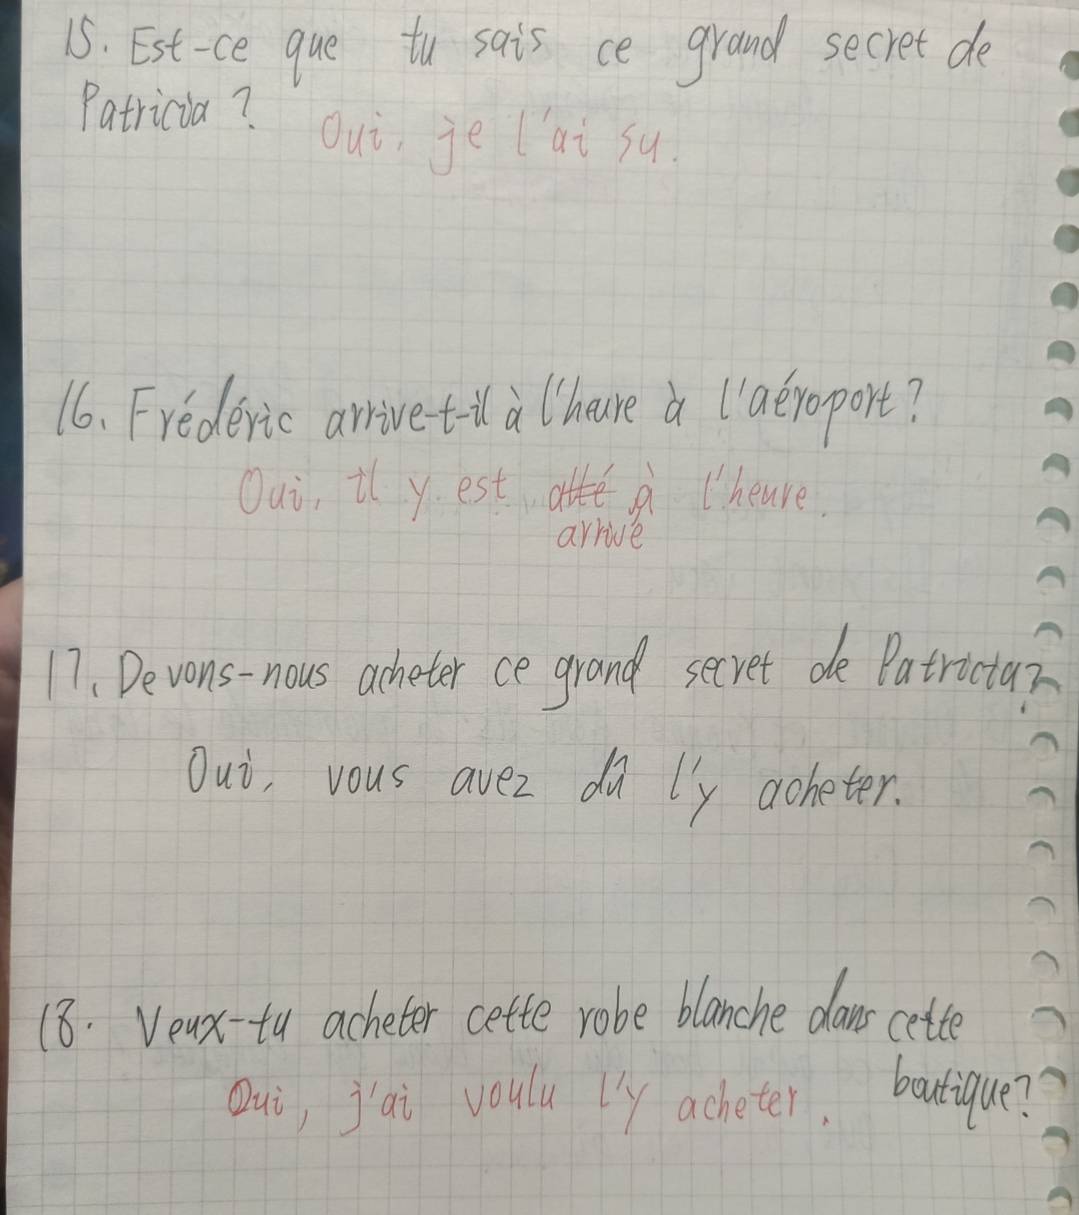 15. Est-ce que tu sais ce grand secret de
Patricia ?
Oui, je l'ai su.
16. Frédéric arrive-t-il à l'heure à l'aéroport ?
Oui, il y est allé à l'heure.
arrivé
17. Devons-nous acheter ce grand secret de Patricia ?
Oui, vous avez dû l'y acheter.
18. Veux-tu acheter cette robe blanche dans cette
boutique ?
Oui, j'ai voulu l'y acheter.